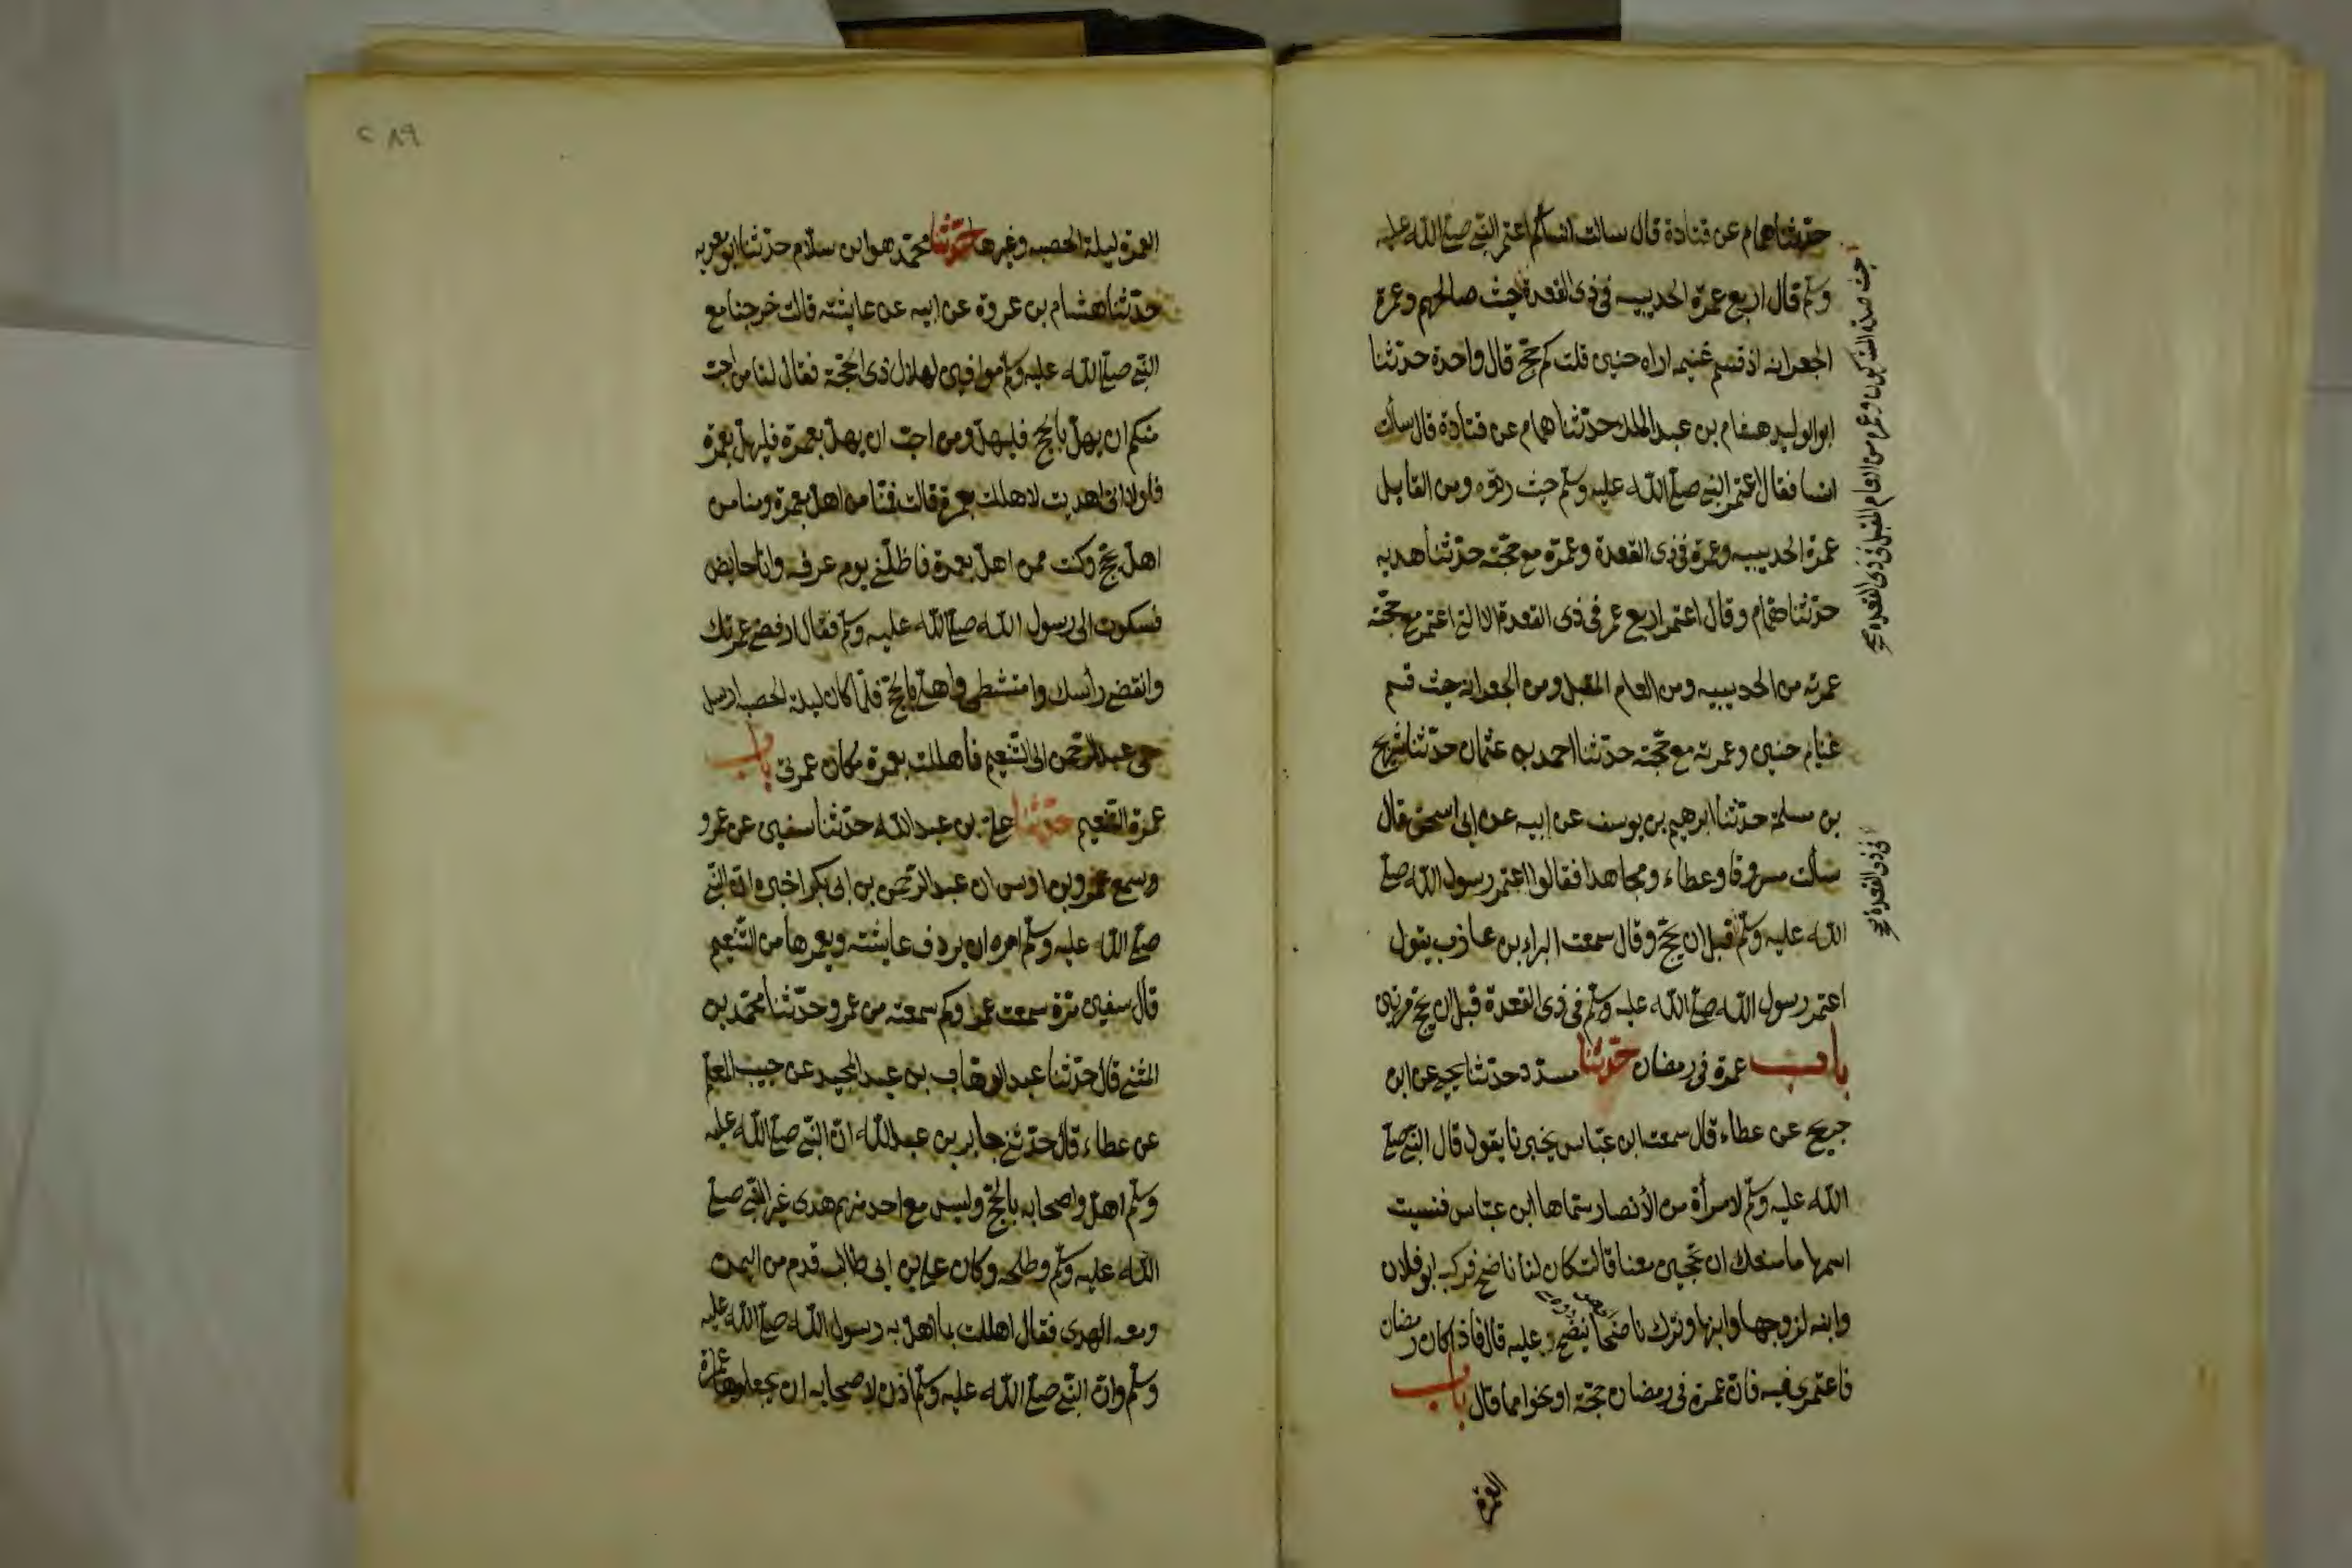 حدثنا همام عن قتادة قال سالت انسا كم اعتمر النبي صلى الله عليه
وسلم قال اربع عمرة الحديبيه في ذي القعدة حيث صالحهم وعمرة
الجعرانه اذ قسم غنيمه اراه حنين قلت كم حج قال واحدة حدثنا
ابو الوليد هشام بن عبد الملك حدثنا همام عن قتادة قال سألت
انسا فقال اعتمر النبي صلى الله عليه وسلم حيث ردوه ومن القابل
عمرة الحديبيه وعمرة في ذي القعدة وعمرة مع حجته حدثنا هدبه
حدثنا همام وقال اعتمر اربع عمر في ذي القعدة الا التي اعتمر مع حجته
عمرته من الحديبيه ومن العام المقبل ومن الجعرانه حيث قسم
غنايم حنين وعمرته مع حجته حدثنا احمد بن عثمان حدثنا شريح
بن مسلمة حدثنا ابرهيم بن يوسف عن ابيه عن ابي اسحق قال
سألت مسروقا وعطاء ومجاهدا فقالوا اعتمر رسول الله صلى
الله عليه وسلم قبل ان يحج وقال سمعت البراء بن عاذب يقول
اعتمر رسول الله صلى الله عليه وسلم في ذي القعدة قبل ان يحج مرتين
باب عمرة في رمضان حدثنا مسدد حدثنا يحيى عن ابن
جريج عن عطاء قال سمعت ابن عباس يخبرنا يقول قال النبي صلى
الله عليه وسلم لامرأة من الأنصار سماها ابن عباس فنسيت
اسمها ما منعك ان تحجين معنا قالت كان لنا ناضح فركبه ابو فلان
وابنه لزوجها وابنها وترك ناضحا ننضح عليه قال فاذا كان رمضان
فاعتمري فيه فان عمرة في رمضان حجة او نحوا مما قال باب
العمرة
حيث صده المشركون وعمرة من العام المقبل في ذي القعدة صح
في ذي القعدة صح
٢٨٩
العمرة ليلة الحصبه وغيرها حدثنا محمد هو ابن سلام حدثنا ابو معويه
حدثنا هشام بن عروة عن ابيه عن عايشه قالت خرجنا مع
النبي صلى الله عليه وسلم موافين لهلال ذي الحجة فقال لنا من احب
منكم ان يهل بالحج فليهل ومن احب ان يهل بعمرة فليهل بعمرة
فلولا اني اهديت لاهللت بعمرة قالت فمنا من اهل بعمرة ومنا من
اهل بحج وكنت ممن اهل بعمرة فاظلني يوم عرفه وانا حايض
فشكوت الى رسول الله صلى الله عليه وسلم فقال ارفضي عمرتك
وانقضي رأسك وامتشطي واهلي بالحج فلما كان ليلة الحصبه ارسل
معي عبد الرحمن الى التنعيم فاهللت بعمرة مكان عمرتي باب
عمرة التنعيم حدثنا علي بن عبد الله حدثنا سفين عن عمرو
وسمع عمرو بن اوس ان عبد الرحمن بن ابي بكر اخبره ان النبي
صلى الله عليه وسلم امره ان يردف عايشه ويعمرها من التنعيم
قال سفين مرة سمعت عمرا وكم سمعته من عمرو حدثنا محمد بن
المثنى قال حدثنا عبد الوهاب بن عبد المجيد عن حبيب المعلم
عن عطاء قال حدثني جابر بن عبد الله ان النبي صلى الله عليه
وسلم اهل واصحابه بالحج وليس مع احد منهم هدى غير النبي صلى
الله عليه وسلم وطلحه وكان علي بن ابي طالب قدم من اليمن
ومعه الهدى فقال اهللت بما اهل به رسول الله صلى الله عليه
وسلم وان النبي صلى الله عليه وسلم اذن لاصحابه ان يجعلوها عمرة